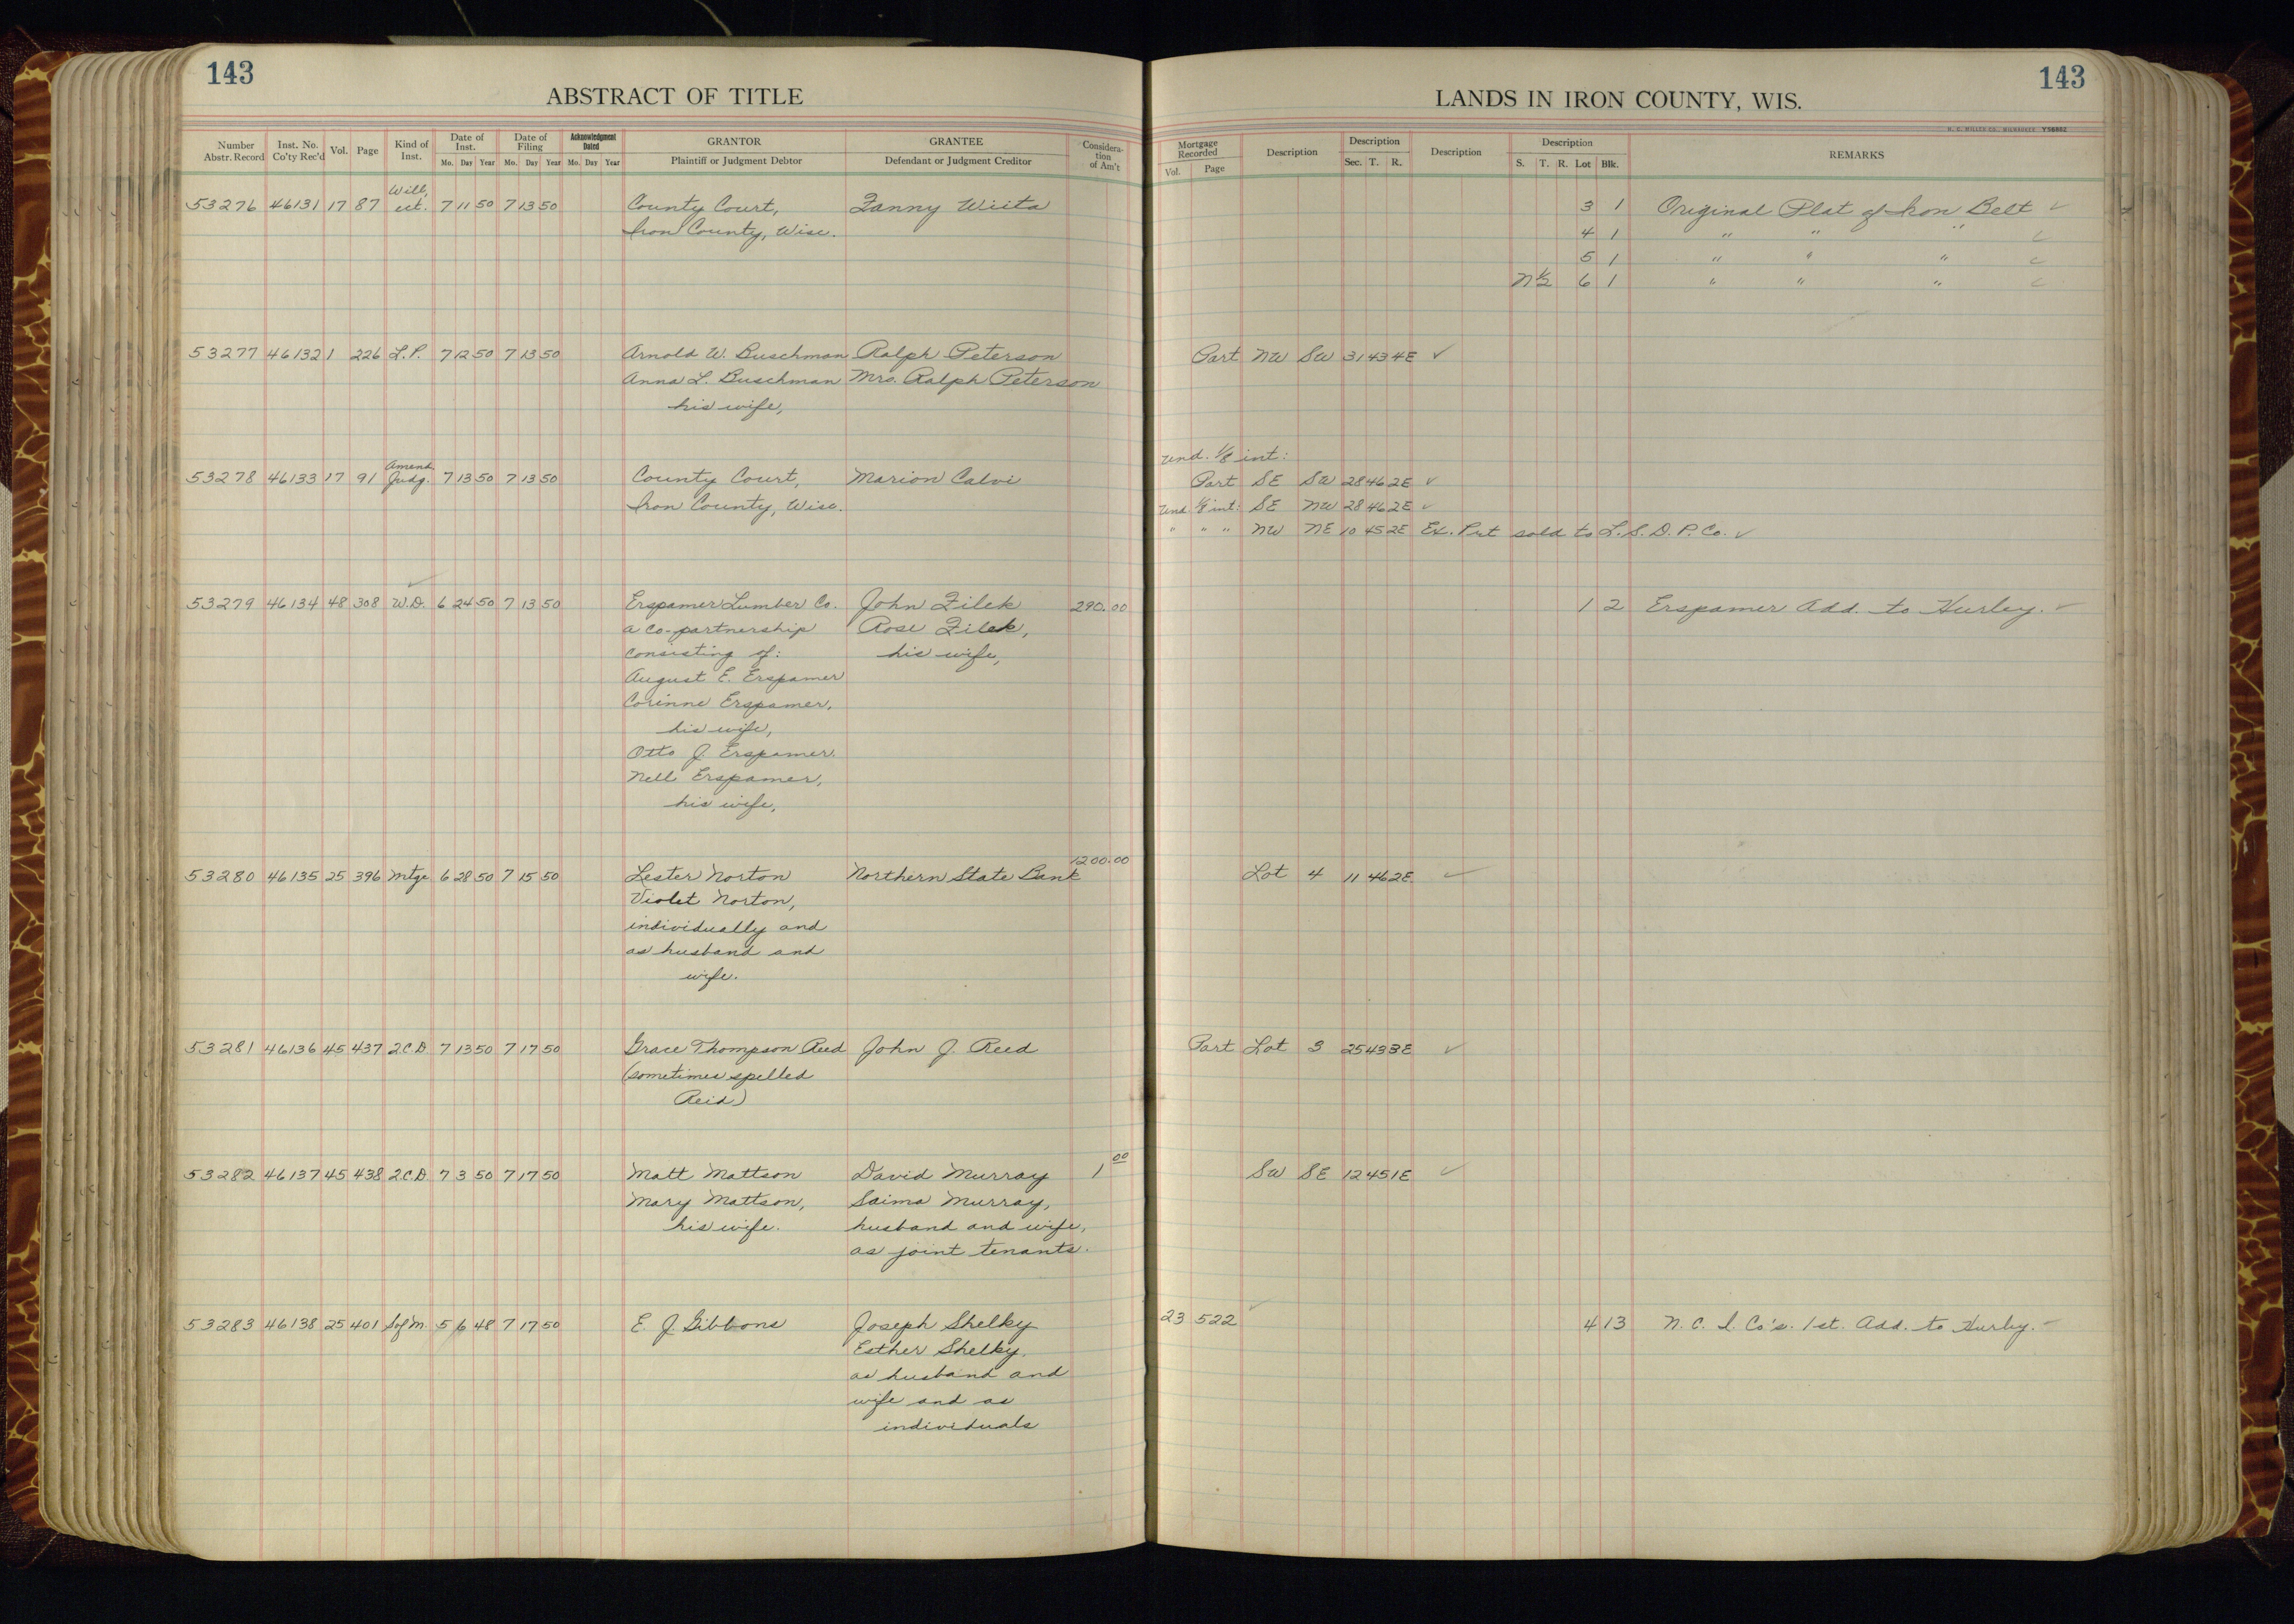 143
ABSTRACT OF TITLE
Number Abstr. Record
Inst. No. Co'ty Rec'd
Vol.
Page
Kind of Inst.
Date of Inst.
Mo. Day Year
Date of Filing
Mo. Day Year
Acknowledgment Dated
Mo. Day Year
GRANTOR
Plaintiff or Judgment Debtor
GRANTEE
Defendant or Judgment Creditor
Consideration of Am't
143
LANDS IN IRON COUNTY, WIS.
H. C. MILLER CO., MILWAUKEE Y56862
Mortgage Recorded
Vol. Page
Description
Description
Sec. T. R.
Description
Description
S. T. R. Lot Blk.
REMARKS
Will,
53276 46131 17 87 ect. 7 11 50 7 13 50 County Court, Fanny Wiita 3 1 Original Plat of Iron Belt ✓
Iron County, Wisc. 4 1 " " " ✓
5 1 " " " ✓
N½ 6 1 " " " ✓
53277 46132 1 226 L.P. 7 12 50 7 13 50 Arnold W. Buschman Ralph Peterson Part NW SW 31 43 4E ✓
Anna L. Buschman Mrs. Ralph Peterson
his wife,
Und. 1/8 int:
Amend.
53278 46133 17 91 Judg. 7 13 50 7 13 50 County Court, Marion Calvi Part SE SW 28 46 2E ✓
Iron County, Wisc. Und. 1/8 int: SE NW 28 46 2E ✓
" " " NW NE 10 45 2E Ex. Prt sold to L.S.D.P. Co. ✓
53279 46134 48 308 W.D. 6 24 50 7 13 50 Erspamer Lumber Co. John Filek 290.00 1 2 Erspamer Add. to Hurley. ✓
a co-partnership Rose Filek,
consisting of: his wife,
August E. Erspamer
Corinne Erspamer,
his wife,
Otto J. Erspamer
Nell Erspamer,
his wife,
1200.00
53280 46135 25 396 Mtge 6 28 50 7 15 50 Lester Norton Northern State Bank Lot 4 11 46 2E ✓
Violet Norton,
individually and
as husband and
wife.
53281 46136 45 437 2CD 7 13 50 7 17 50 Grace Thompson Reed John J. Reed Part Lot 3 25 43 3E ✓
(sometimes spelled
Reid)
53282 46137 45 438 2CD 7 3 50 7 17 50 Matt Mattson David Murray 1 00 SW SE 12 45 1E ✓
Mary Mattson, Saima Murray,
his wife. husband and wife,
as joint tenants.
53283 46138 25 401 S of M. 5 6 48 7 17 50 E. J. Gibbons Joseph Shelky 23 522 ✓ 4 13 N. C. I. Co's. 1st. Add. to Hurley.
Esther Shelky,
as husband and
wife and as
individuals